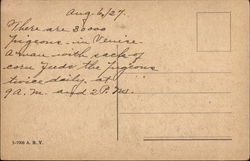 Aug. 6, 27.
There are 30000
pigeons in Venice
A man with sack of
corn feeds the pigeons
twice daily at
9 A.M. and 2 P.M.